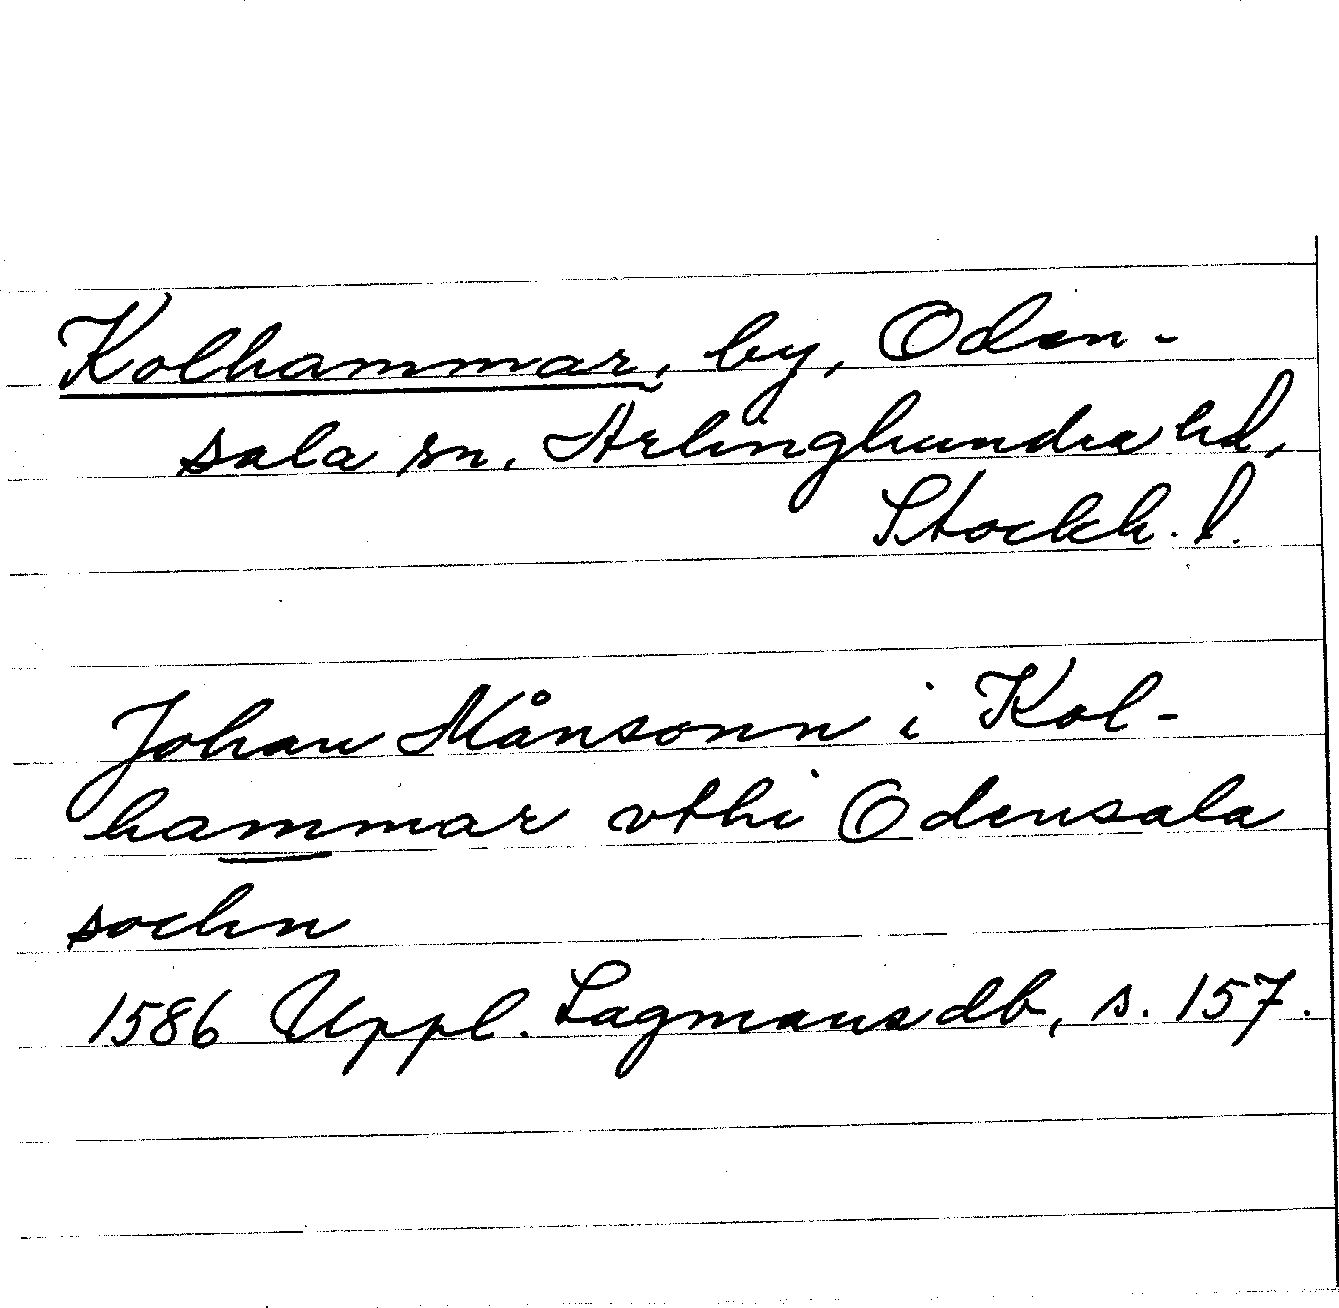 Kolhammar, by, Oden-
sala sn, Ärlinghundra hd,
Stockh. l.
Johan Månsonn i Kol-
hammar vthi Odensala
sochn
1586 Uppl. Lagmansdb, s. 157.